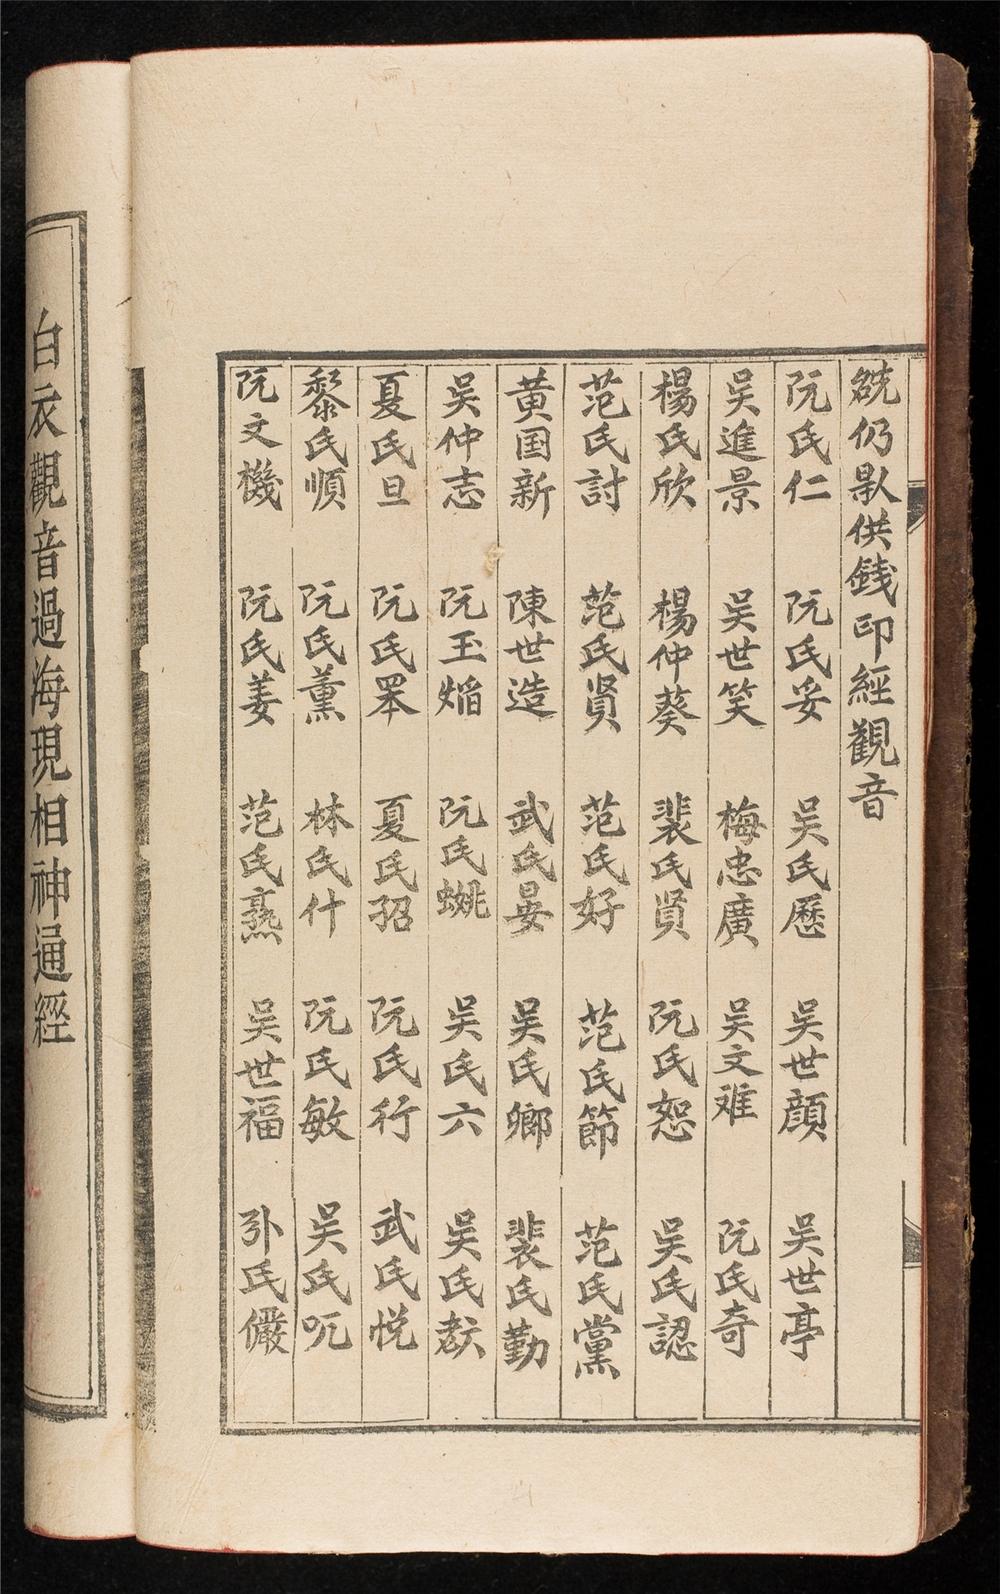 仍供錢印經觀音
阮氏仁 阮氏妥 吴氏歷 吴世顔 吴世亭
吴進景 吴世笑 梅忠廣 吴文难 阮氏奇
楊氏欣 楊仲葵 裴氏賢 阮氏恕 吴氏認
范氏討 范氏賢 范氏好 范氏節 范氏黨
黄国新 陳世造 武氏晏 吴氏鄉 裴氏勤
吴仲志 阮玉焰 阮氏 吴氏六 吴氏
夏氏旦 阮氏 夏氏招 阮氏行 武氏悦
黎氏順 阮氏薰 林氏什 阮氏敏 吴氏呃
阮文機 阮氏姜 范氏熟 吴世福 氏儼
白衣觀音過海現相神通經